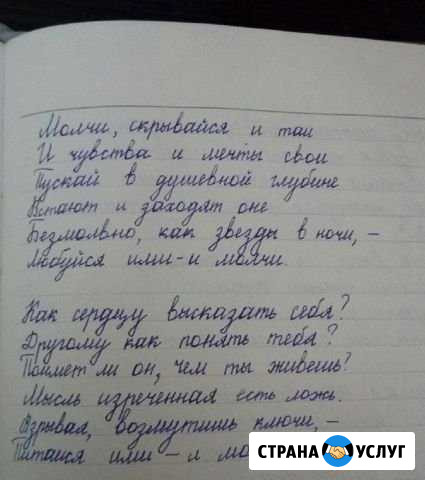 Молчи, скрывайся и таи
И чувства и мечты свои
Пускай в душевной глубине
Встают и заходят оне
Безмолвно, как звезды в ночи, –
Любуйся ими – и молчи.
Как сердцу высказать себя?
Другому как понять тебя?
Поймет ли он, чем ты живешь?
Мысль изреченная есть ложь.
Взрывая, возмутишь ключи, –
Питайся ими – и мо
СТРАНА УСЛУГ